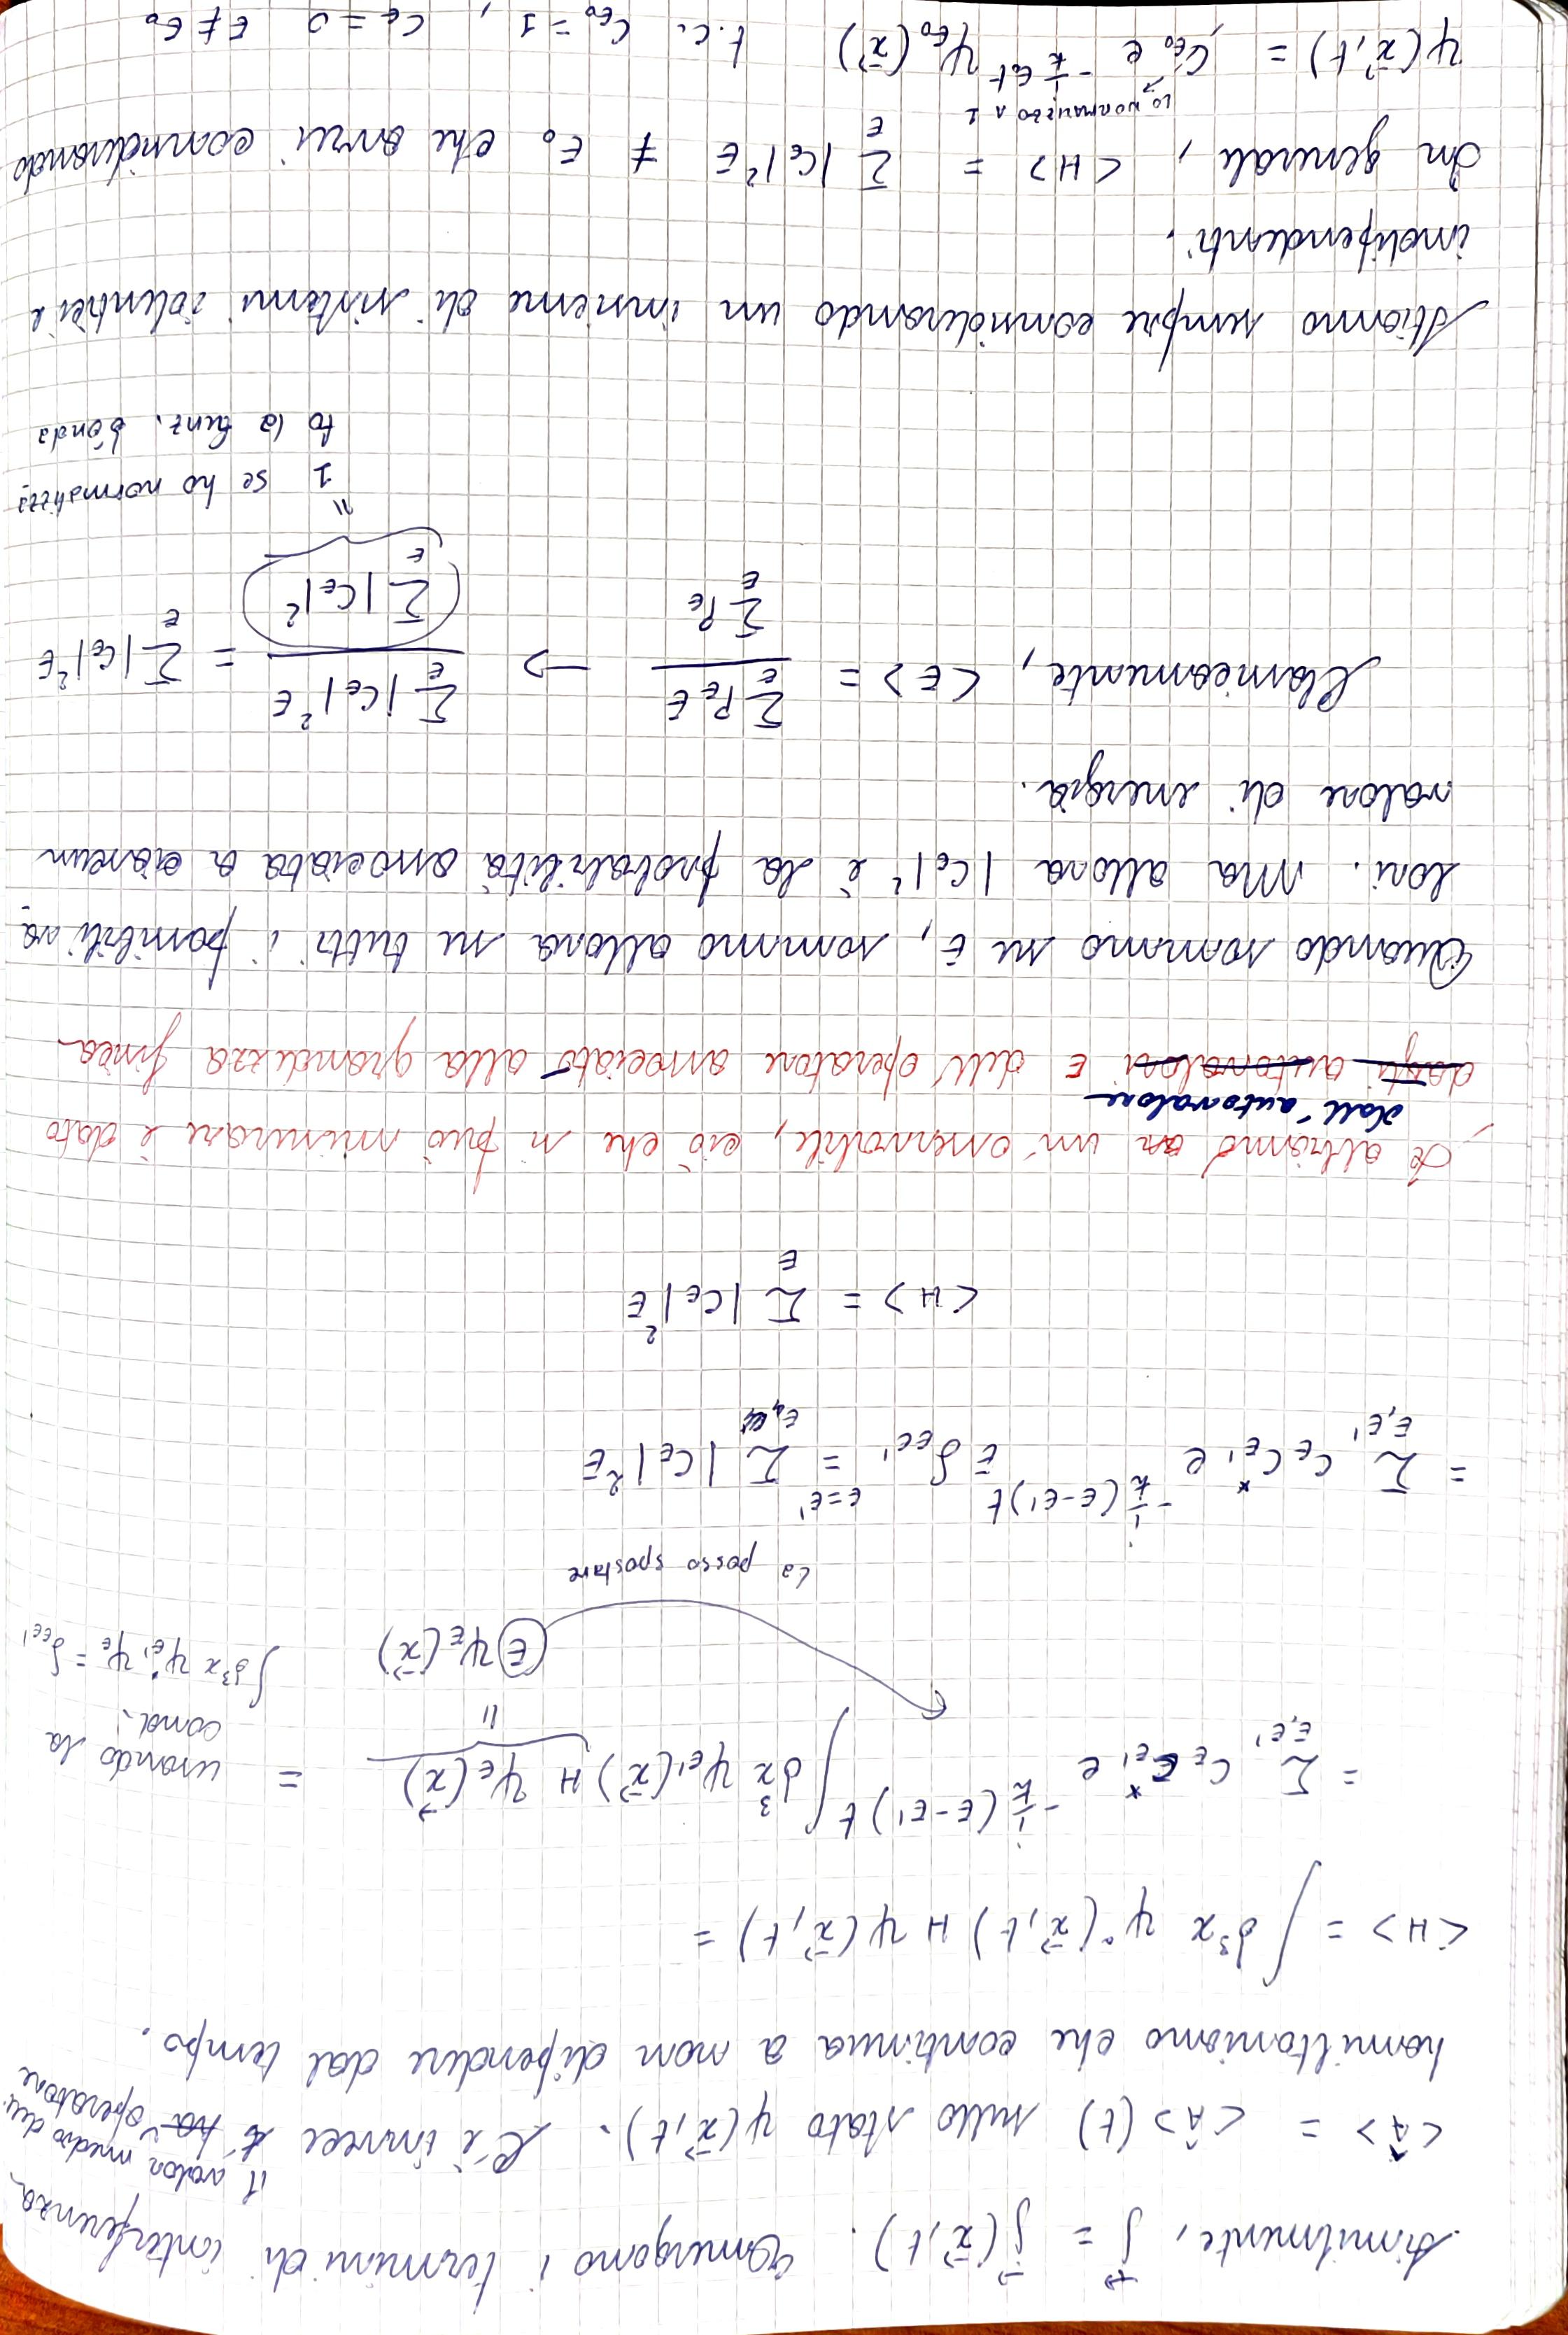 Similmente, \vec{J} = \vec{J}(\vec{x},t). Emergono i termini di interferenza
<Â> = <Â>(t) sullo stato ψ(\vec{x},t). C'è invece il valor medio dell' operatore
hamiltoniano che continua a non dipendere dal tempo.
<H> = ∫ d³x ψ*(\vec{x},t) H ψ(\vec{x},t) =
= Σ_{E,E'} C_E C*_{E'} e^{-\frac{i}{ħ}(E-E')t} ∫ d³x ψ_{E'}(\vec{x}) H ψ_E(\vec{x}) = usando la
cond. ∫ d³x ψ*_{E'} ψ_E = δ_{EE'}
|| E ψ_E(\vec{x})
lo posso spostare
= Σ_{E,E'} C_E C*_{E'} e^{-\frac{i}{ħ}(E-E')t} E δ_{EE'} =^{E=E'} Σ_E |C_E|² E
<H> = Σ_E |C_E|² E
Se abbiamo un' osservabile, ciò che si può misurare è dato
dall'autovalore
dagli autovalori E dell'operatore associato alla grandezza fisica
Quando sommo su E, sommo allora su tutti i possibili va
lori. Ma allora |C_E|² è la probabilità associata a ciascun
valore di energia.
Classicamente, <E> = \frac{Σ_E P_E E}{Σ_E P_E} → \frac{Σ_E |C_E|² E}{(Σ_E |C_E|²)} = Σ_E |C_E|² E
||
1 se ho normalizza
to la funz. d'onda
Stiamo sempre considerando un insieme di sistemi identici e
indipendenti.
In generale, <H> = Σ_E |C_E|² E ≠ E₀ che avrei considerando
lo normalizzo a 1
ψ(\vec{x},t) = C_{E₀} e^{-\frac{i}{ħ}E₀t} ψ_{E₀}(\vec{x}) t.c. C_{E₀} = 1, C_E = 0 E ≠ E₀